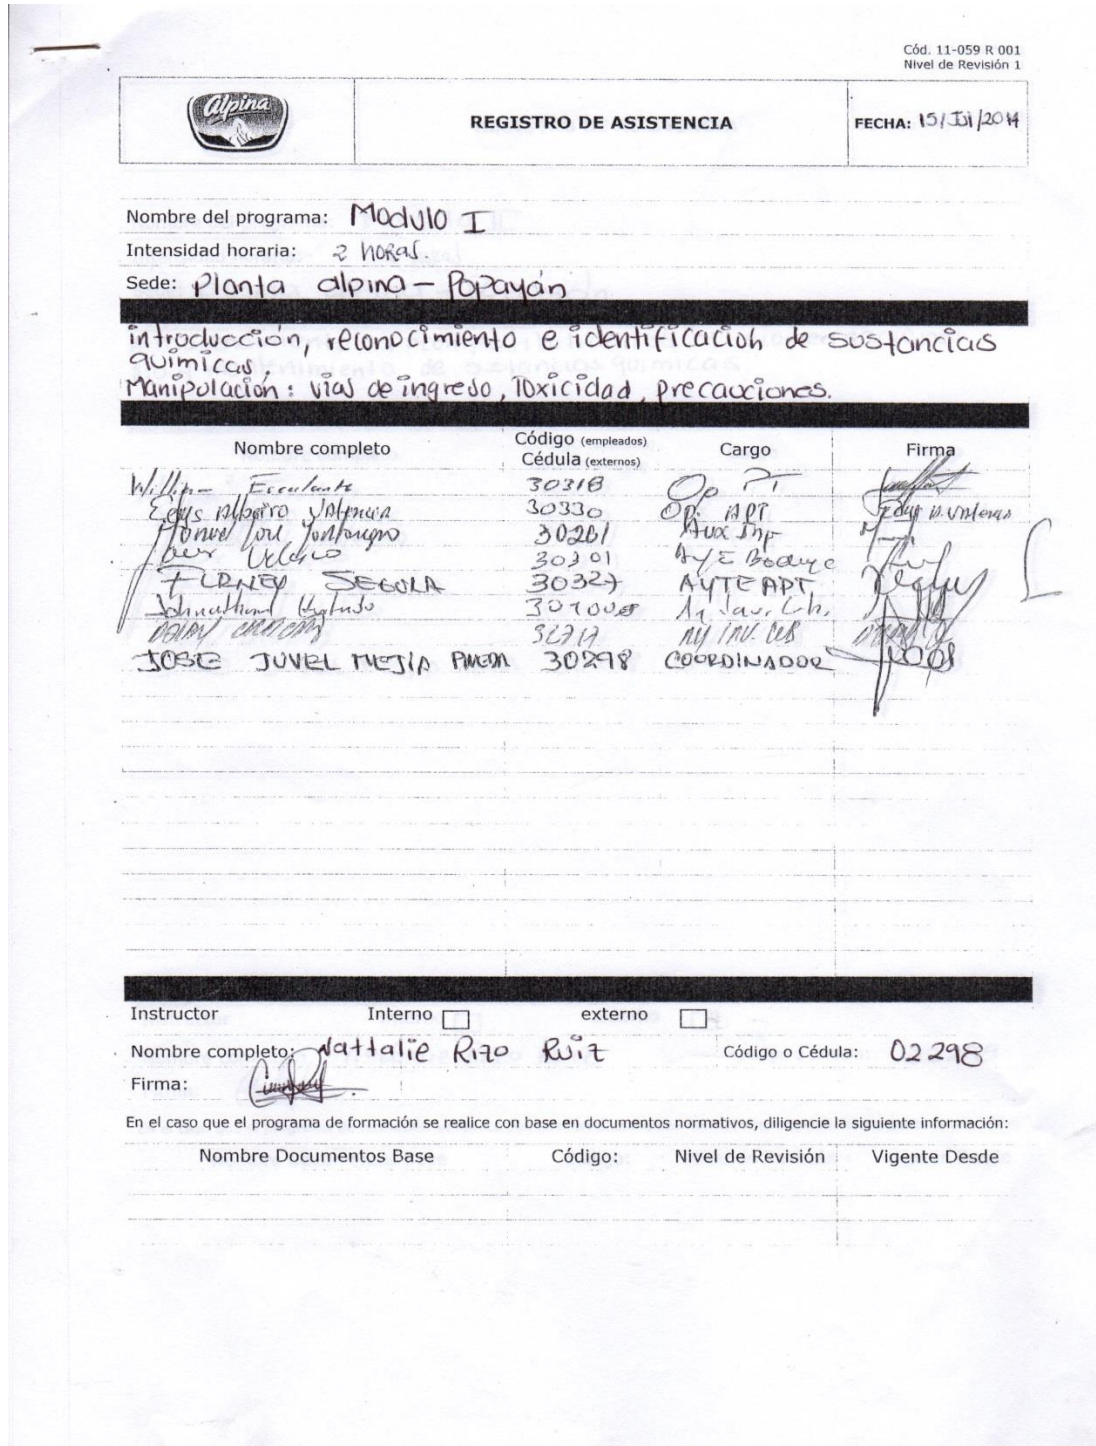 Cód. 11-059 R 001
Nivel de Revisión 1
alpina
REGISTRO DE ASISTENCIA
FECHA: 15/Jul/2014
Nombre del programa: Modulo I
Intensidad horaria: 2 horas.
Sede: Planta alpina - Popayán
introducción, reconocimiento e identificación de sustancias
químicas.
Manipulación: vías de ingreso, Toxicidad, precauciones.
Nombre completo Código (empleados) Cédula (externos) Cargo Firma
Escalante 30318 Op PT
Valencia 30330 Op. APT
Manuel José 30261 Aux
Velasco 30301
FIRNEY SEGURA 30327 AYTE APT
Johnathand
JOSE JUVEL MEJIA PINEDA 30298 COORDINADOR
Instructor Interno externo
Nombre completo: Nattalie Rizo Ruiz Código o Cédula: 02298
Firma:
En el caso que el programa de formación se realice con base en documentos normativos, diligencie la siguiente información:
Nombre Documentos Base Código: Nivel de Revisión Vigente Desde